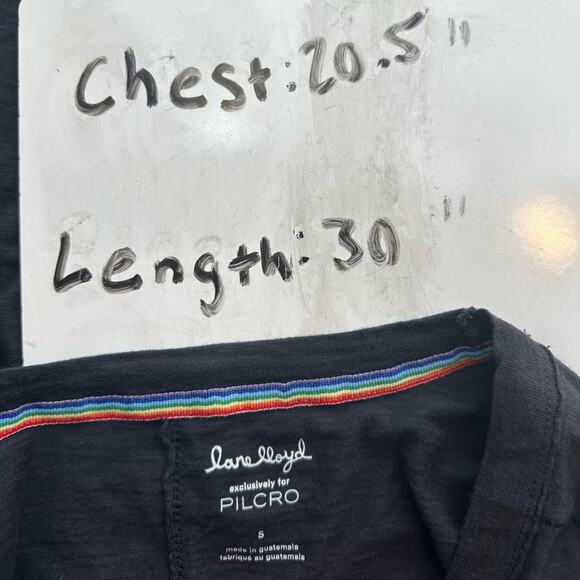 Chest: 20.5"
Length: 30"
lane lloyd
exclusively for
PILCRO
S
made in guatemala
fabriqué au guatemala